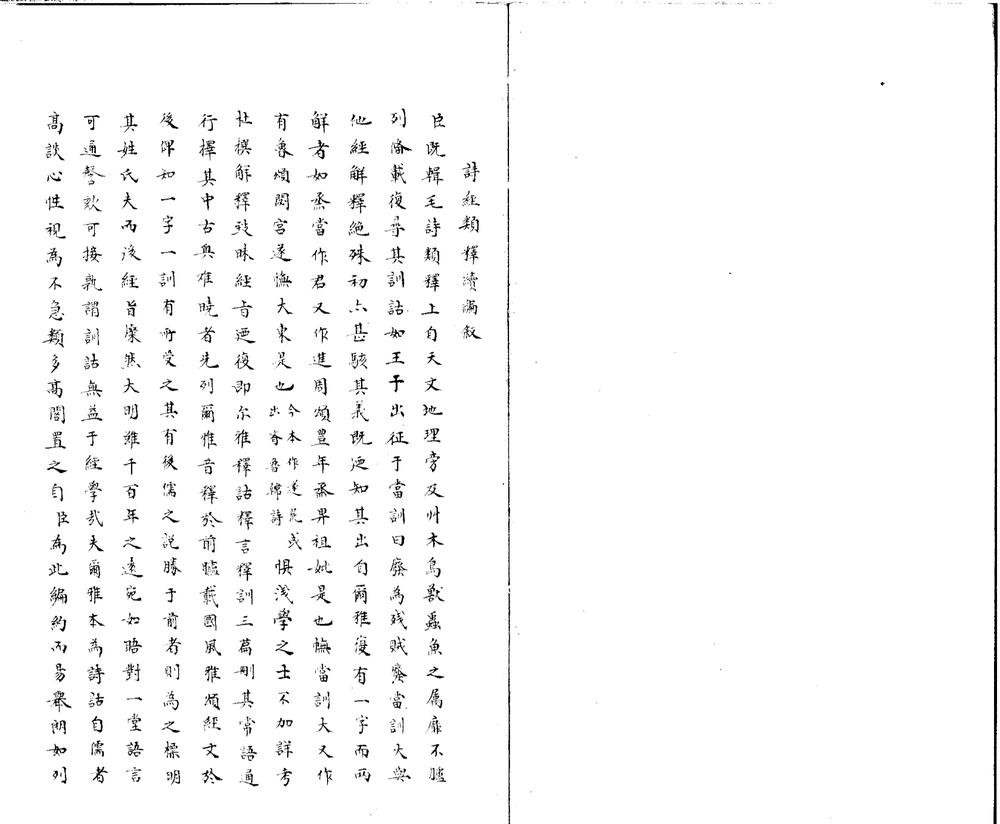 詩經類釋續編叙
臣既輯毛詩類釋上自天文地理旁及艸木鳥獸蟲魚之屬靡不臚
列備載復尋其訓詁如王于出征于當訓曰廢為殘賊廢當訓大與
他經解釋絕殊初亦甚駭其義既迺知其出自爾雅復有一字而兩
解者如烝當作君又作進周頌豐年烝畀祖妣是也憮當訓大又作
有魯頌閟宮遂憮大東是也今本作遂荒或出齊魯韓詩惧淺學之士不加詳考
杜撰解釋致昧經旨迺復即尔雅釋詁釋言釋訓三篇刪其常語通
行擇其中古奧难曉者先列爾雅音釋於前臚載國風雅頌經文於
後俾知一字一訓有所受之其有後儒之説勝于前者則為之標明
其姓氏夫而後經旨燦然大明雖千百年之遠宛如晤對一堂語言
可通謦欬可接孰謂訓詁無益于經學哉夫爾雅本為詩詁自儒者
高談心性視為不急類多高閣置之自臣為此編約而易舉朗如列